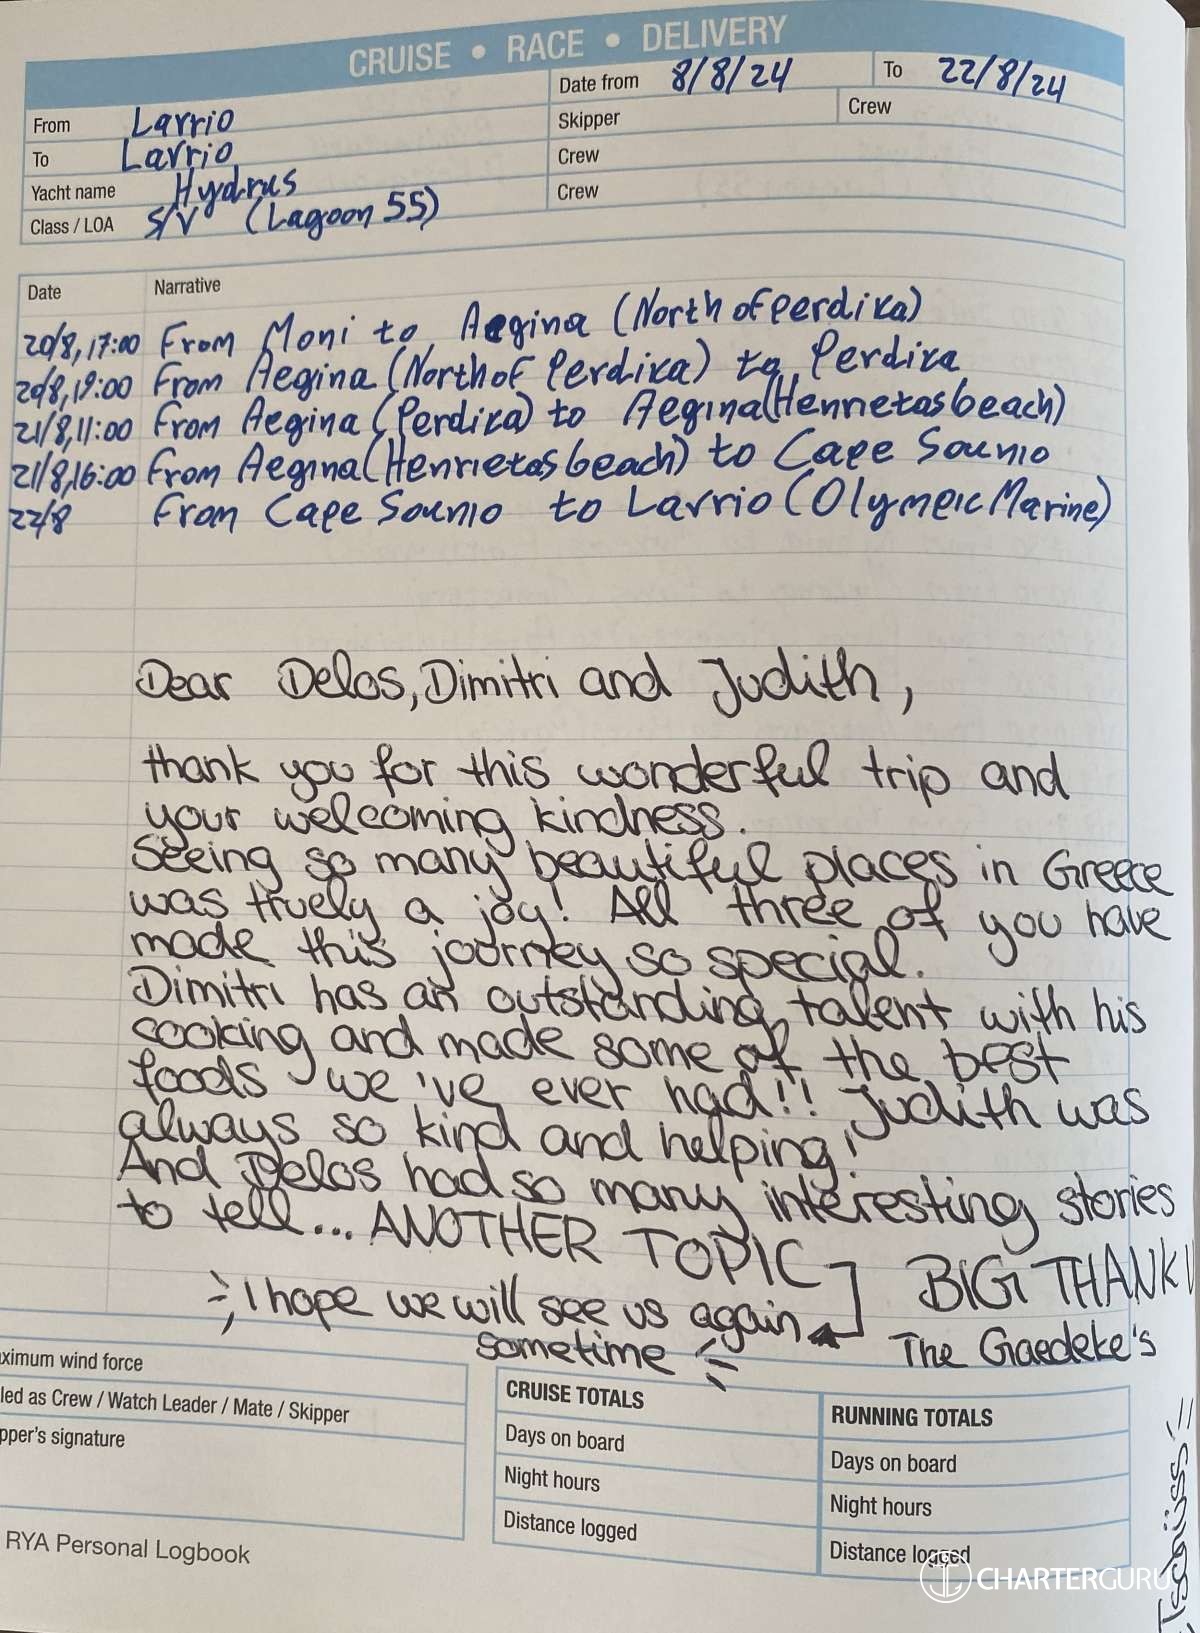 CRUISE • RACE • DELIVERY
From Lavrio
To Lavrio
Yacht name Hydrus
Class / LOA S/V (Lagoon 55)
Date from 8/8/24 To 22/8/24
Skipper
Crew
Crew
Crew
Date Narrative
20/8, 17:00 From Moni to Aegina (North of perdika)
20/8, 19:00 From Aegina (North of Perdika) to Perdika
21/8, 11:00 From Aegina (Perdika) to Aegina (Henrietas beach)
21/8, 16:00 From Aegina (Henrietas beach) to Cape Sounio
22/8 From Cape Sounio to Lavrio (Olympic Marine)
Dear Delos, Dimitri and Judith,
thank you for this wonderful trip and
your welcoming kindness.
Seeing so many beautiful places in Greece
was truely a joy! All three of you have
made this journey so special.
Dimitri has an outstanding talent with his
cooking and made some of the best
foods we've ever had!! Judith was
always so kind and helping!
And Delos had so many interesting stories
to tell... ANOTHER TOPIC
I hope we will see us again
sometime
BIG THANK
The Gaedeke's
Tschüss
ximum wind force
led as Crew / Watch Leader / Mate / Skipper
pper's signature
CRUISE TOTALS
Days on board
Night hours
Distance logged
RUNNING TOTALS
Days on board
Night hours
Distance logged
RYA Personal Logbook
CHARTERGURU